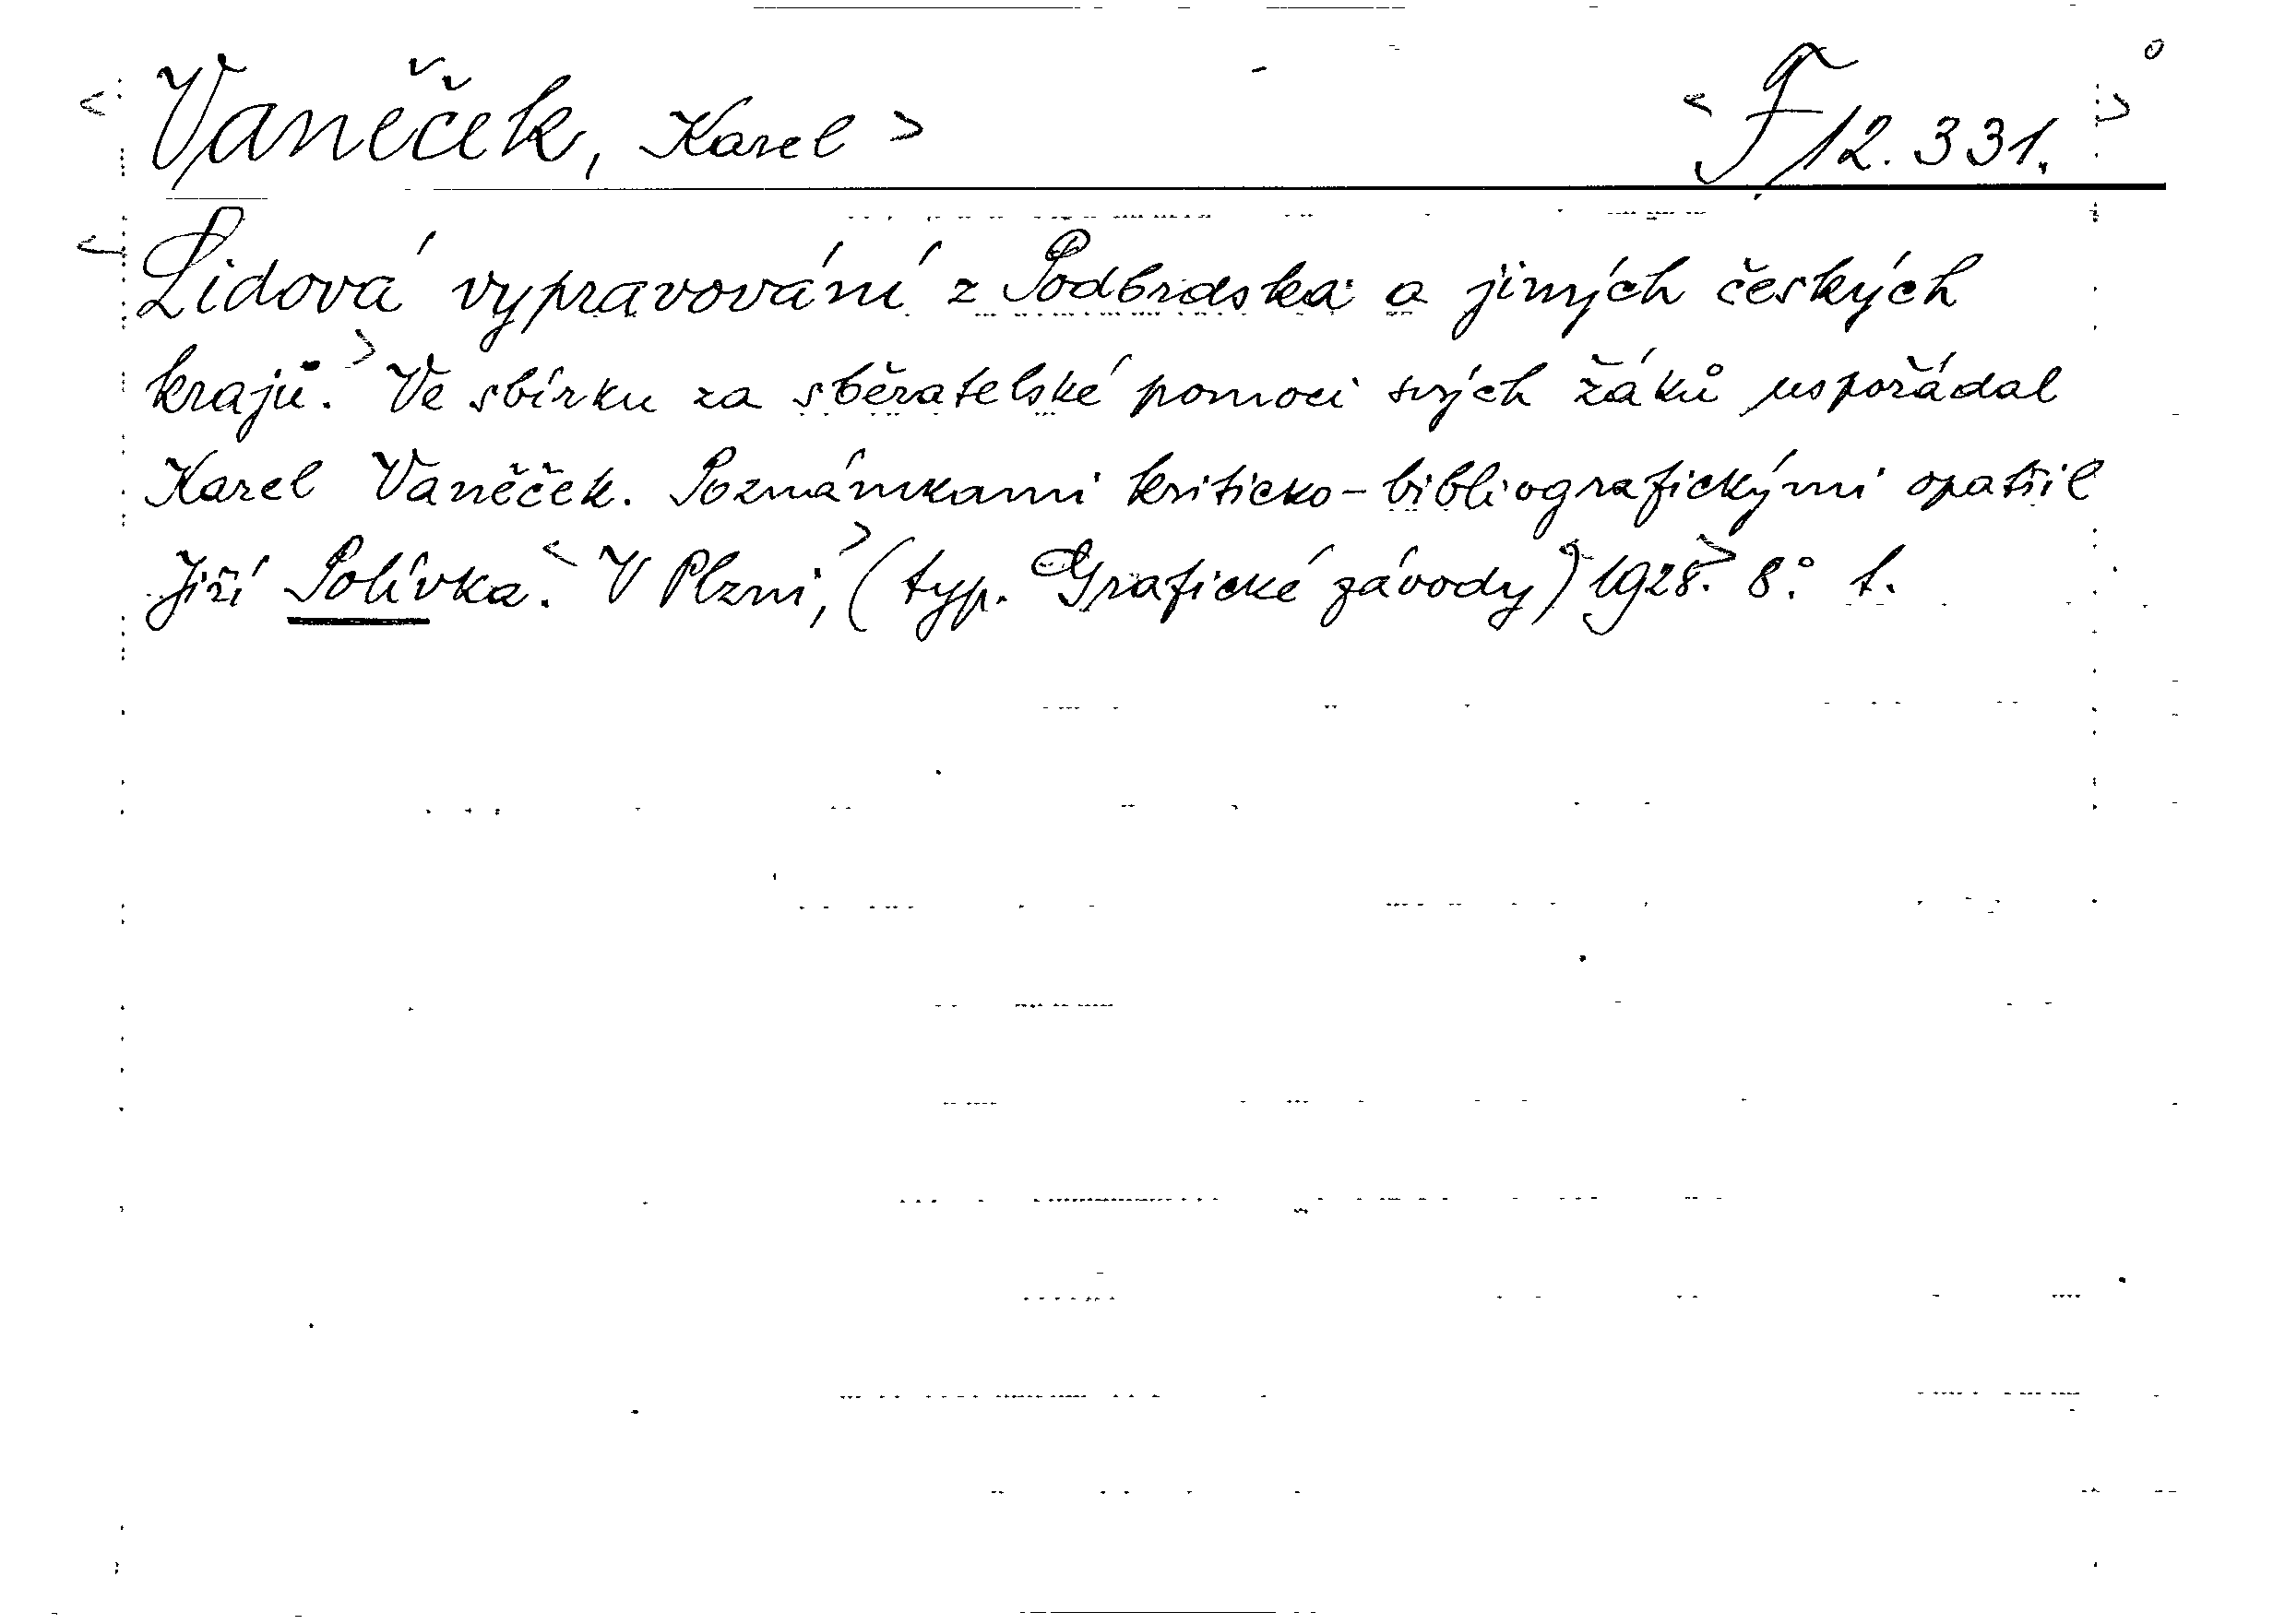 <Vaněček, Karel> <F 12.331.>
<Lidová vypravování z Podbrdska a jiných českých
krajů.> Ve sbírku za sběratelské pomoci svých žáků uspořádal
Karel Vaněček. Poznámkami kriticko-bibliografickými opatřil
Jiří Polívka. <V Plzni,> (typ. Grafické závody) 1928.> 8.° f.